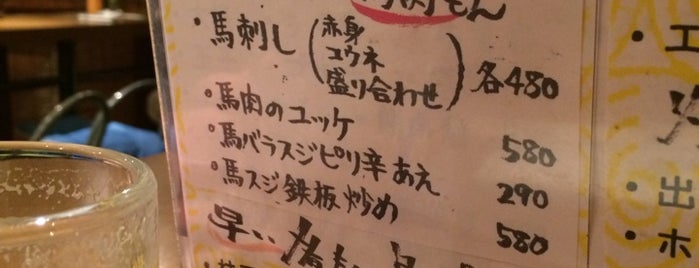 ・馬刺し（赤身
ユウネ
盛り合わせ）各480
・馬肉のユッケ 580
・馬バラスジピリ辛あえ 290
・馬スジ鉄板炒め 580
早い
・エ
・出
・ホ